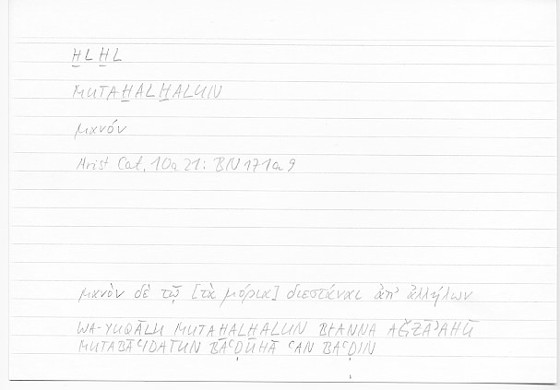 H̱LH̱L
MUTAH̱ALH̱ALUN
μανόν
Arist Cat. 10a 21: BN 171a 9
μανὸν δὲ τῷ [τὰ μόρια] διεστάναι ἀπ' ἀλλήλων
WA-YUQĀLU MUTAH̱ALH̱ALUN BI-ANNA AǦZĀʾAHŪ
MUTABĀʿIDATUN BAʿḌUHĀ ʿAN BAʿḌIN